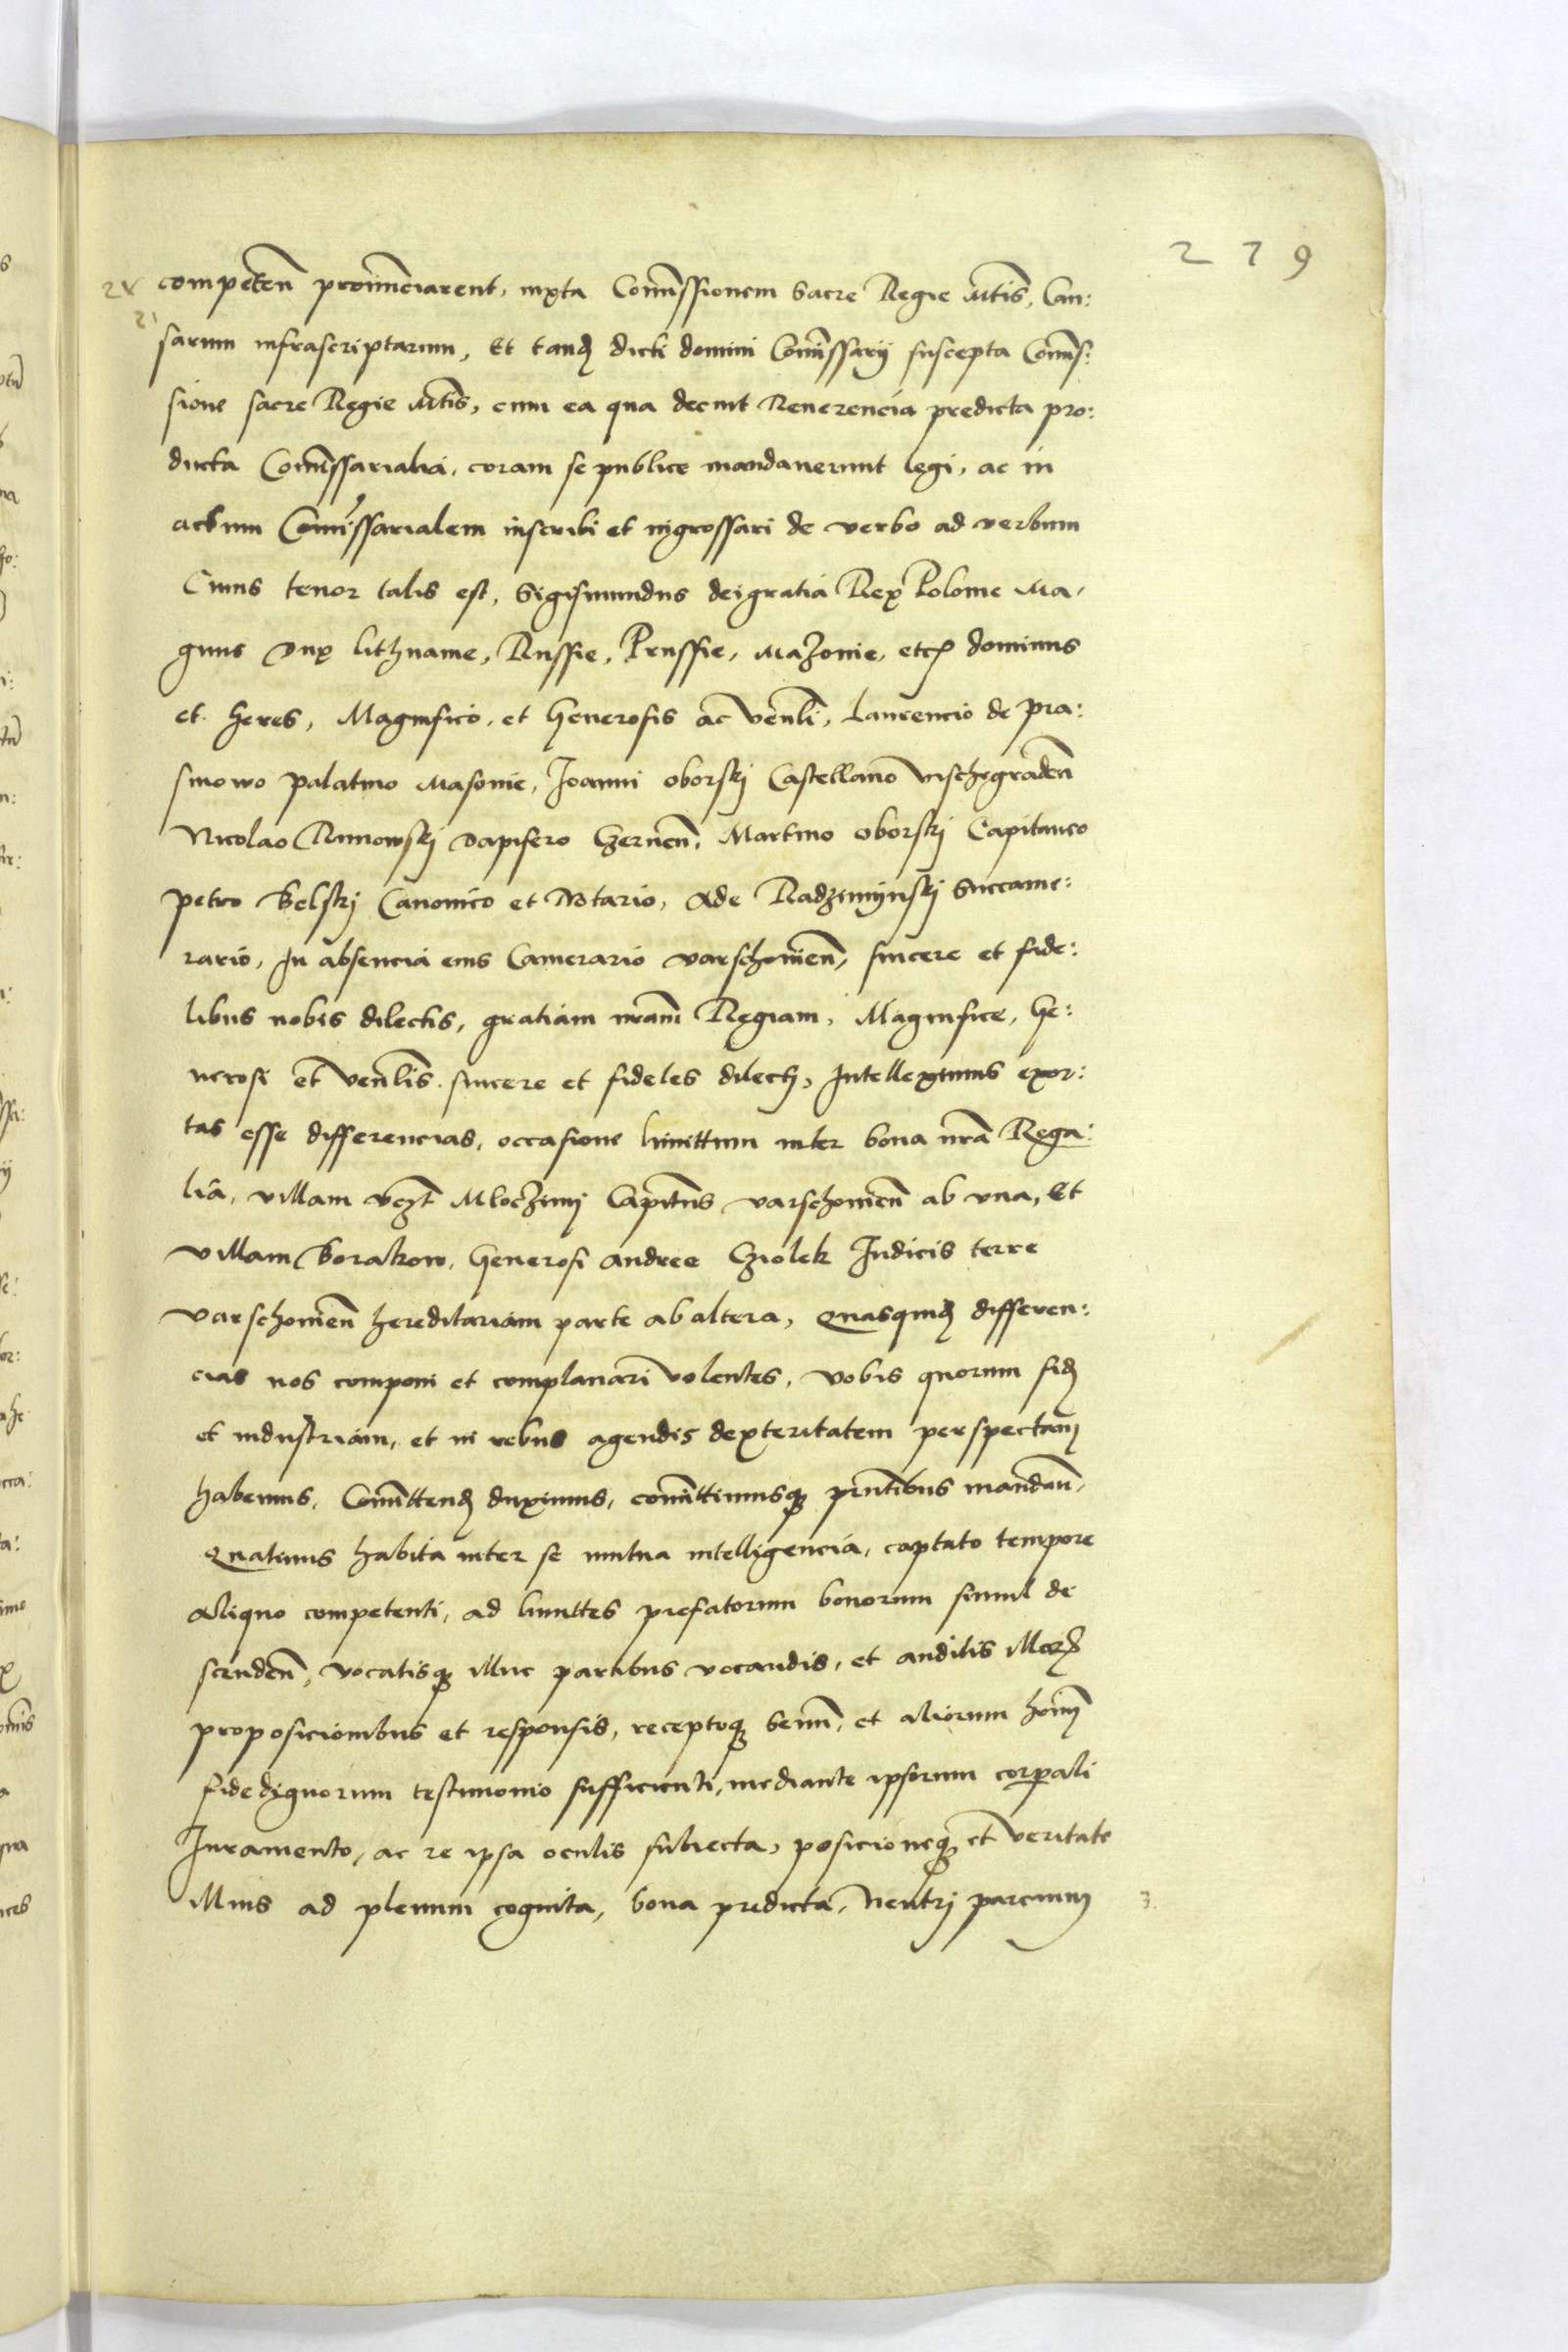 279
competen pronunciarent, iuxta Comissionem Sacre Regie Mtis, Cau:
sarum infrascriptarum, Et tand dicti domini Comissarij suscepta Comis:
sione sacre Regie Mtis, cum ea qua decuit Reuerencia predicta pro:
ducta Comissarialia, coram se publice mandauerunt legi, ac in
actum Comissarialem inscribi et ingrossari de verbo ad verbum
Cuius tenor talis est, Sigismundus dei gratia Rex Polonie Ma,
gnus Dux Lithuanie, Russie, Prussie, Mazouie, etc dominus
et heres, Magnifico, et Generosis ac Venli, Laurencio de Pra:
smowo palatino Masouie, Joanni oborskj Castellano vischegraden
Nicolao Runowskj Dapifero Czernen, Martino oborskj Capitaneo
petro Belskj Canonico et Notario, Ade Radzimijnskj Succame:
rario, In absencia eius Camerario varschouien, sincere et fide:
libus nobis dilectis, gratiam nram Regiam, Magnifice, Ge:
nerosi et Venlis sincere et fideles dilecti, Intelleximus exor:
tas esse differencias, occasione limittum inter bona nra Rega:
lia, villam vezt Mloczinj Capitus varschouien ab vna, Et
villam Borakow, Generosi Andree Cziolek Iudicis terre
varschouien hereditariam parte ab altera, Quasquid differen:
cias nos componi et complanari volentes, vobis quorum fid
et industriam, et in rebus agendis dexteritatem perspectam
habemus, Comittend duximus, comittimusque pntibus mandan,
Quatinus habita inter se mutua intelligencia, captato tempore
aliquo competenti, ad limittes prefatorum bonorum simul de
scenden, vocatisque illuc partibus vocandis, et auditis illor
proposicionibus et responsis, receptoque Senum, et aliorum homi
fidedignorum testimonio sufficienti, mediante ipsorum corpali
Iuramento, ac re ipsa oculis subiecta, posicioneque et veritate
illius ad plenum cognita, bona predicta, Neutrj parcium